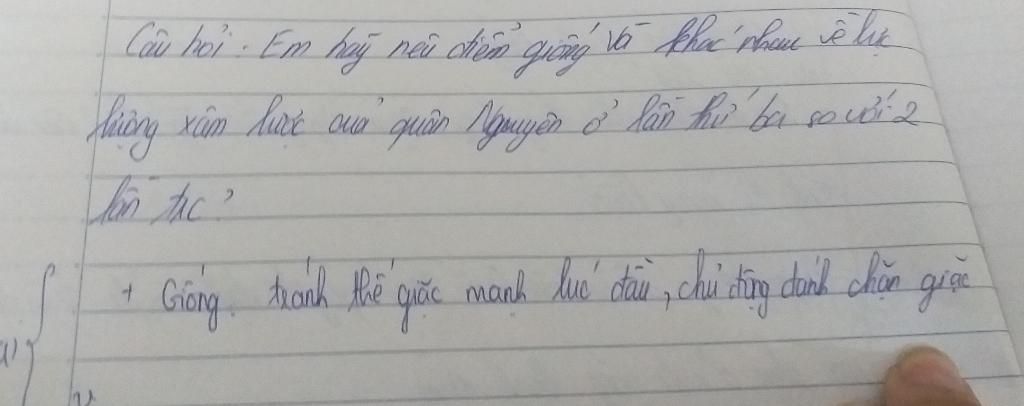 Câu hỏi: Em hãy nêu điểm giống và khác nhau về lực
lượng xâm lược của quân Nguyên ở lần thứ ba so với 2
lần trc?
+ Giống: tránh thế giặc mạnh lúc đầu, chủ động đánh chặn giặc